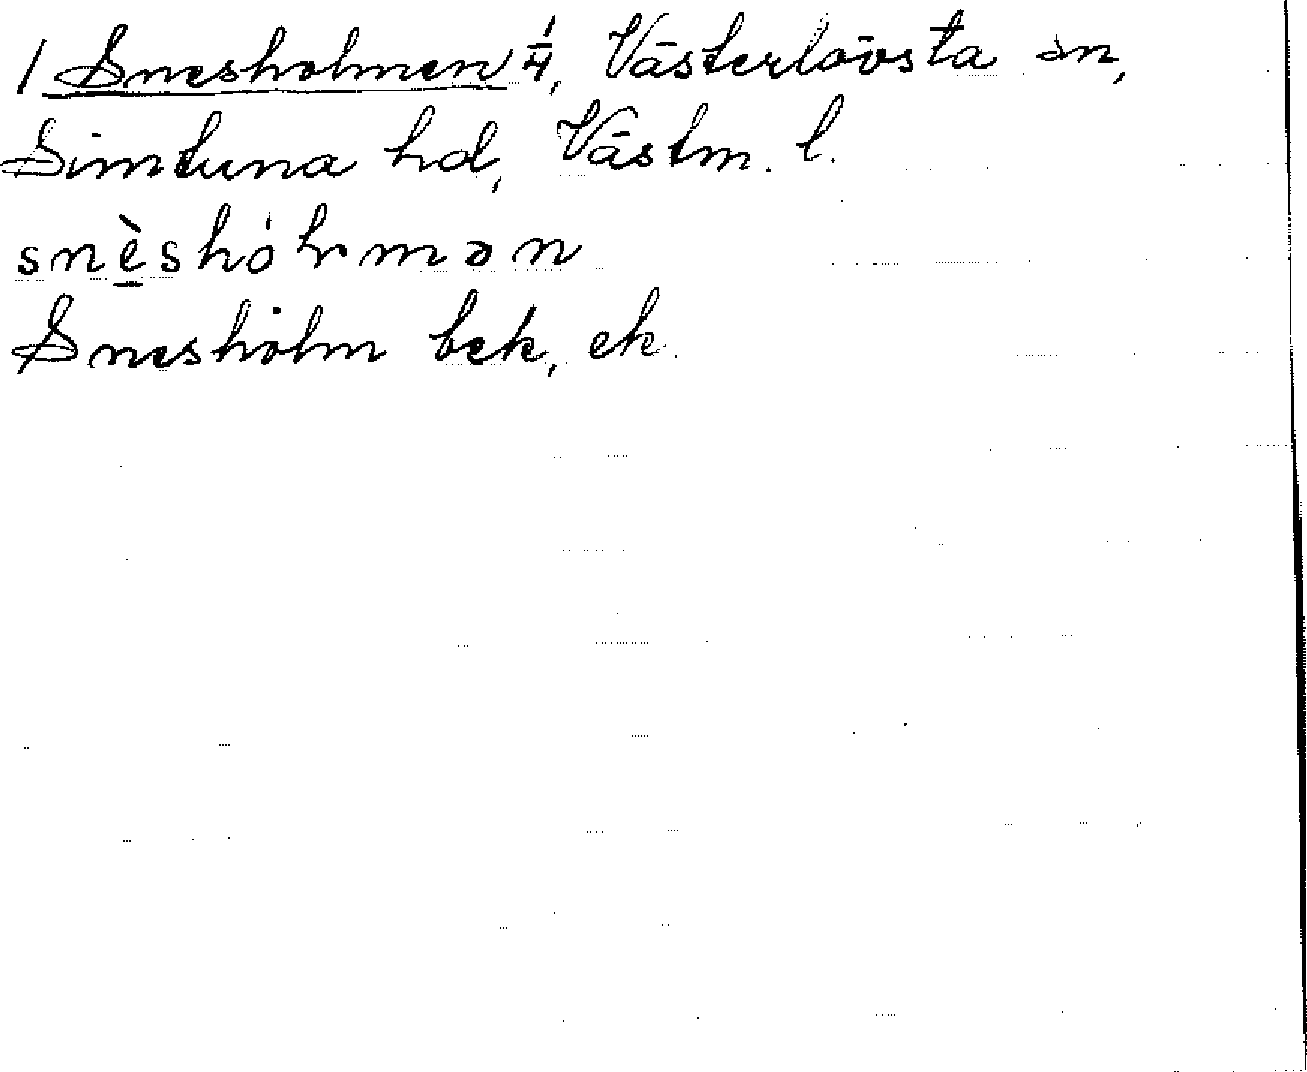 1 Snesholmen 1/4, Västerlövsta sn,
Simtuna hd, Västm. l.
Snesholm bek, ek.